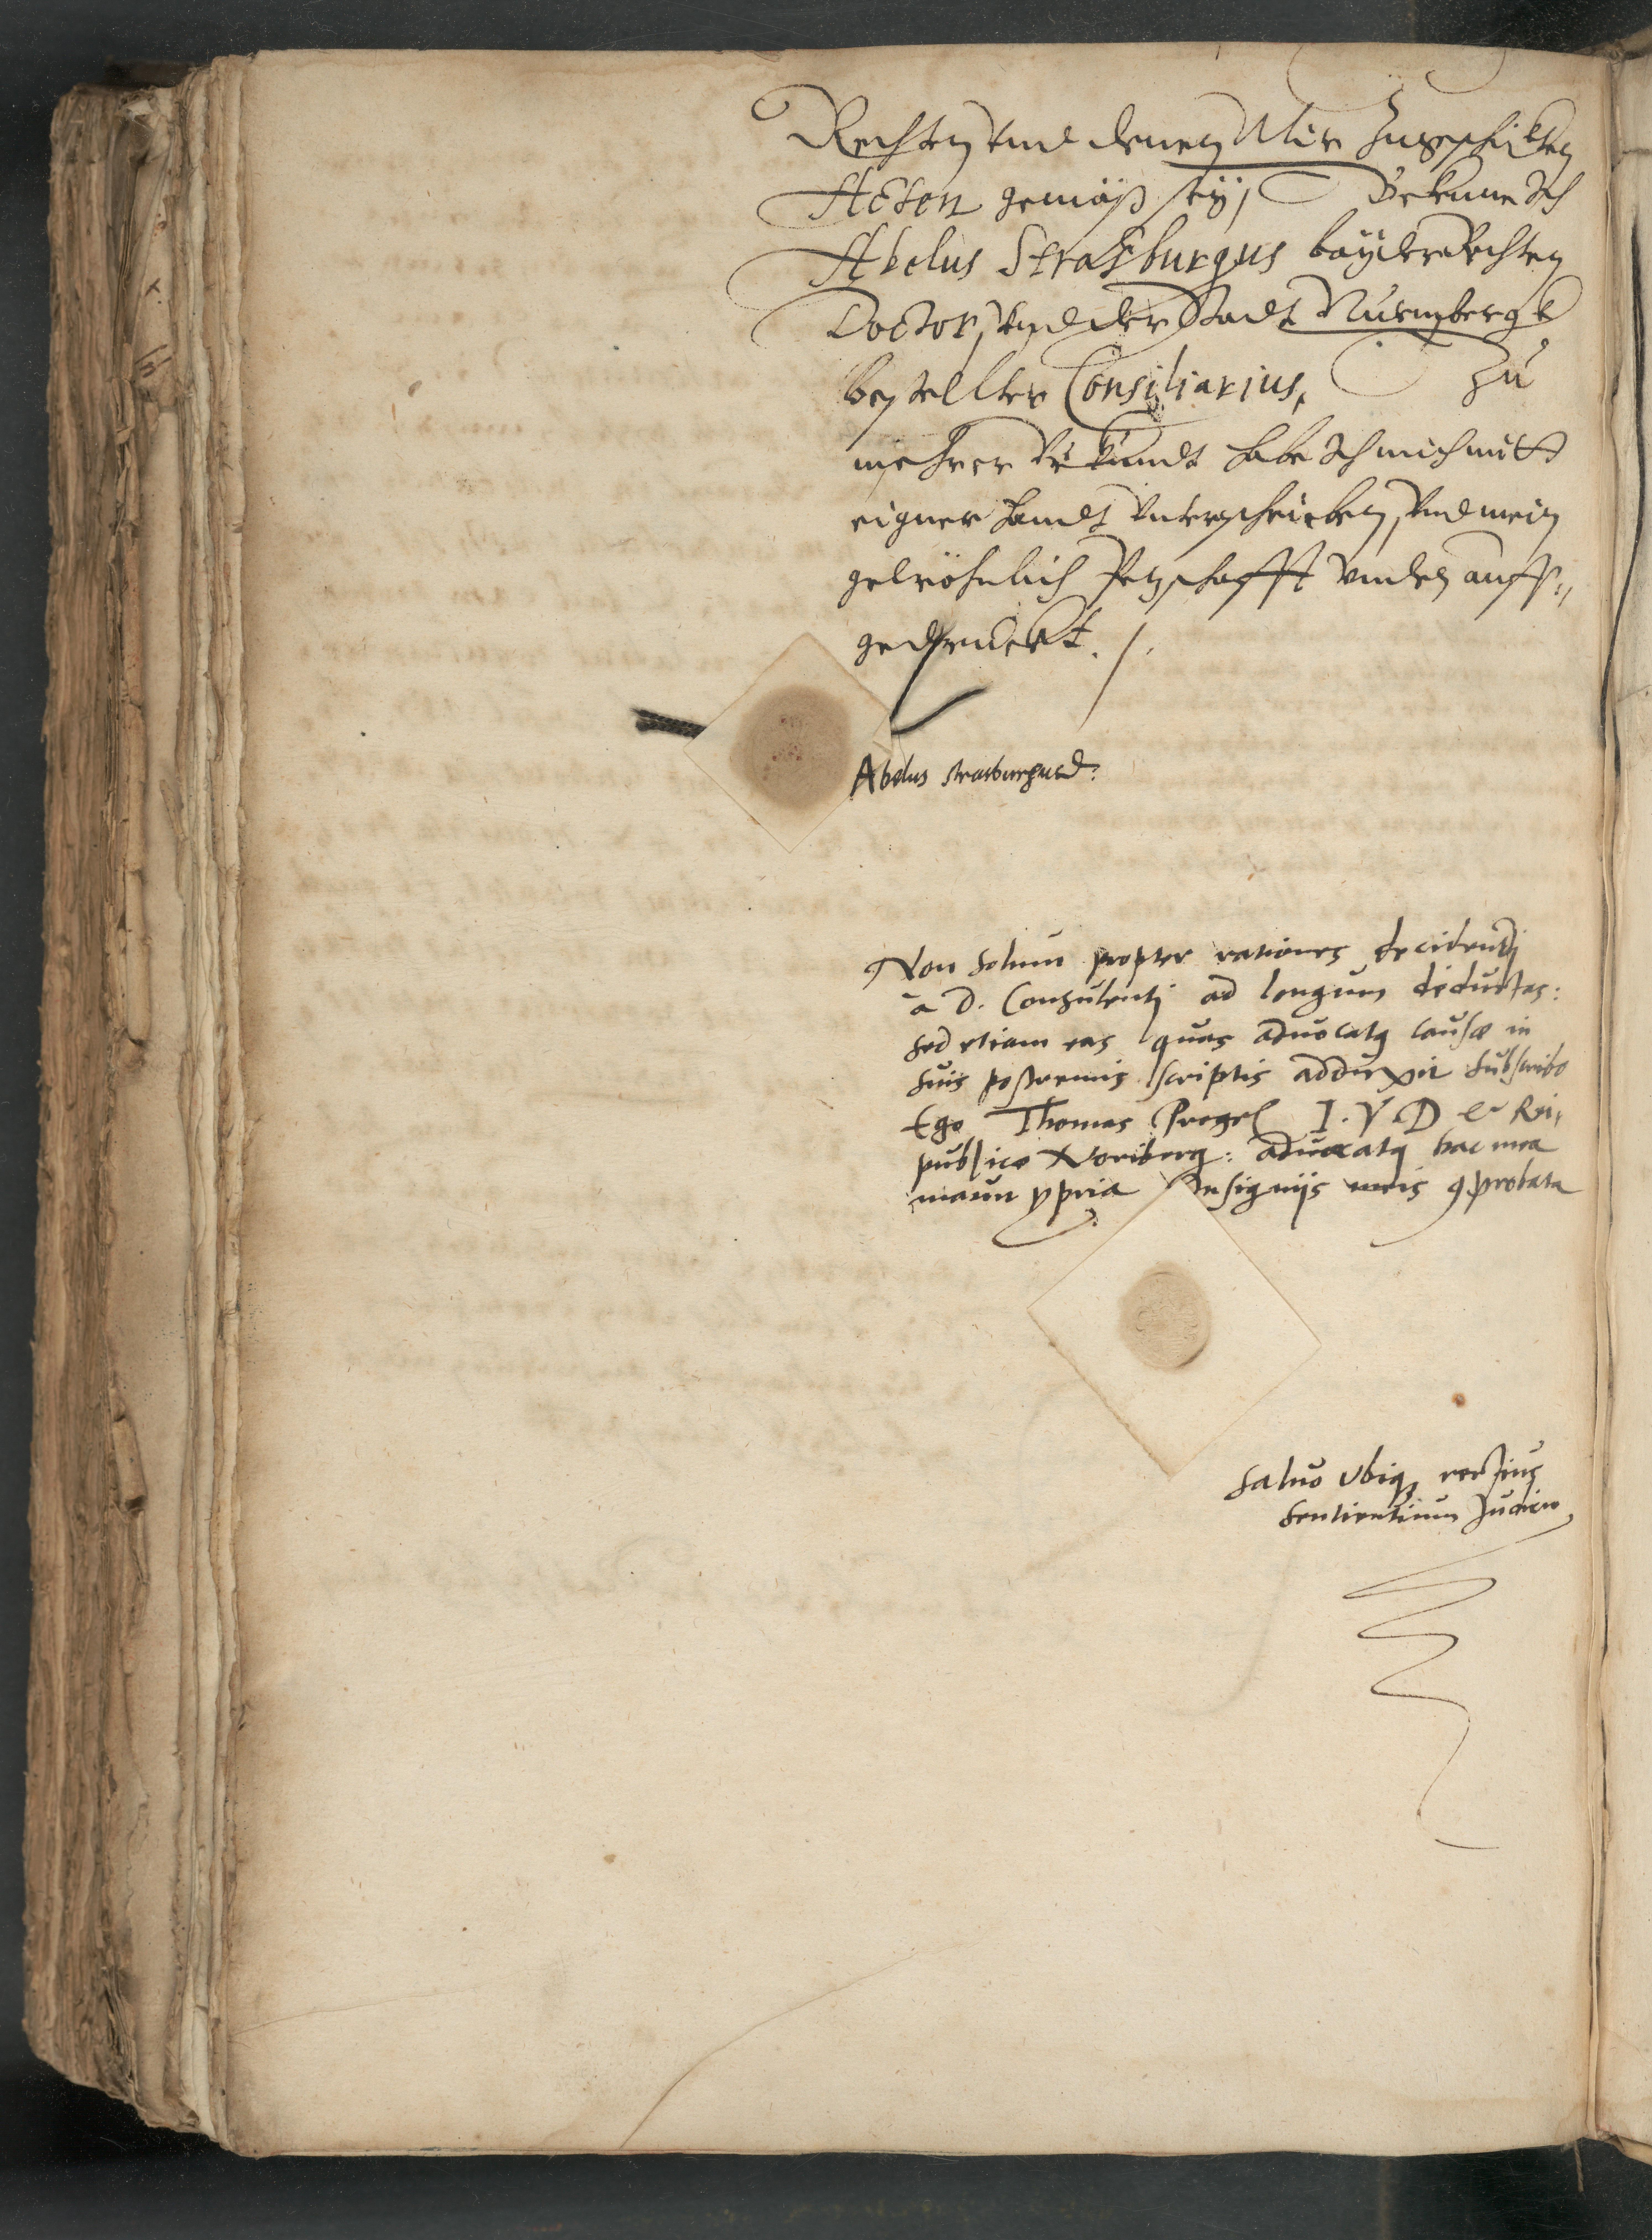 Rechten vnd denen Mir zugeschickten
Acten gemäß seÿ, Bekenne Ich
Abelus Straßburgus baÿder Rechten
Doctor, vnd der Stadt Nürmbergk
bestellter Consiliarius, Zu
mehrer Vrkundt habe Ich mich mitt
eigner Handt vnterschrieben, vnd mein
gewöhnlich Petschafft vnden auff-
gedruckt ./.
Abelus Strasburgus D:
Non solum propter rationes decidendj
a D. Consulentj ad longum deductas:
sed etiam eas quas aduocatq causæ in
suis postremis scriptis adduxit subscribo
Ego Thomas Pregel I. V. D & Rei-
publicæ Noriberg: aduocatq hac mea
manu ppria Insignijs meis 9probata
Saluo vbiq rectius
sentientium Judicio